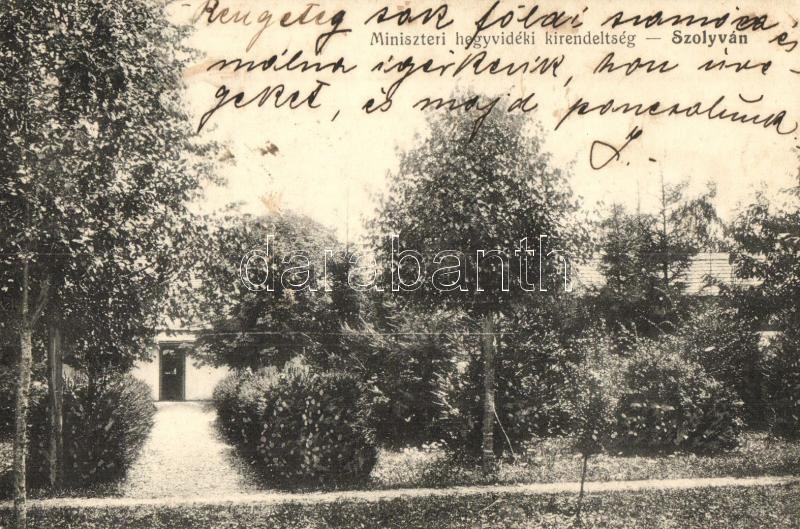 Rengeteg sok földi szamóca és
Miniszteri hegyvidéki kirendeltség — Szolyván
málna igérkezik, hon üve-
geket, és majd poncsolunk
J.
darabanth